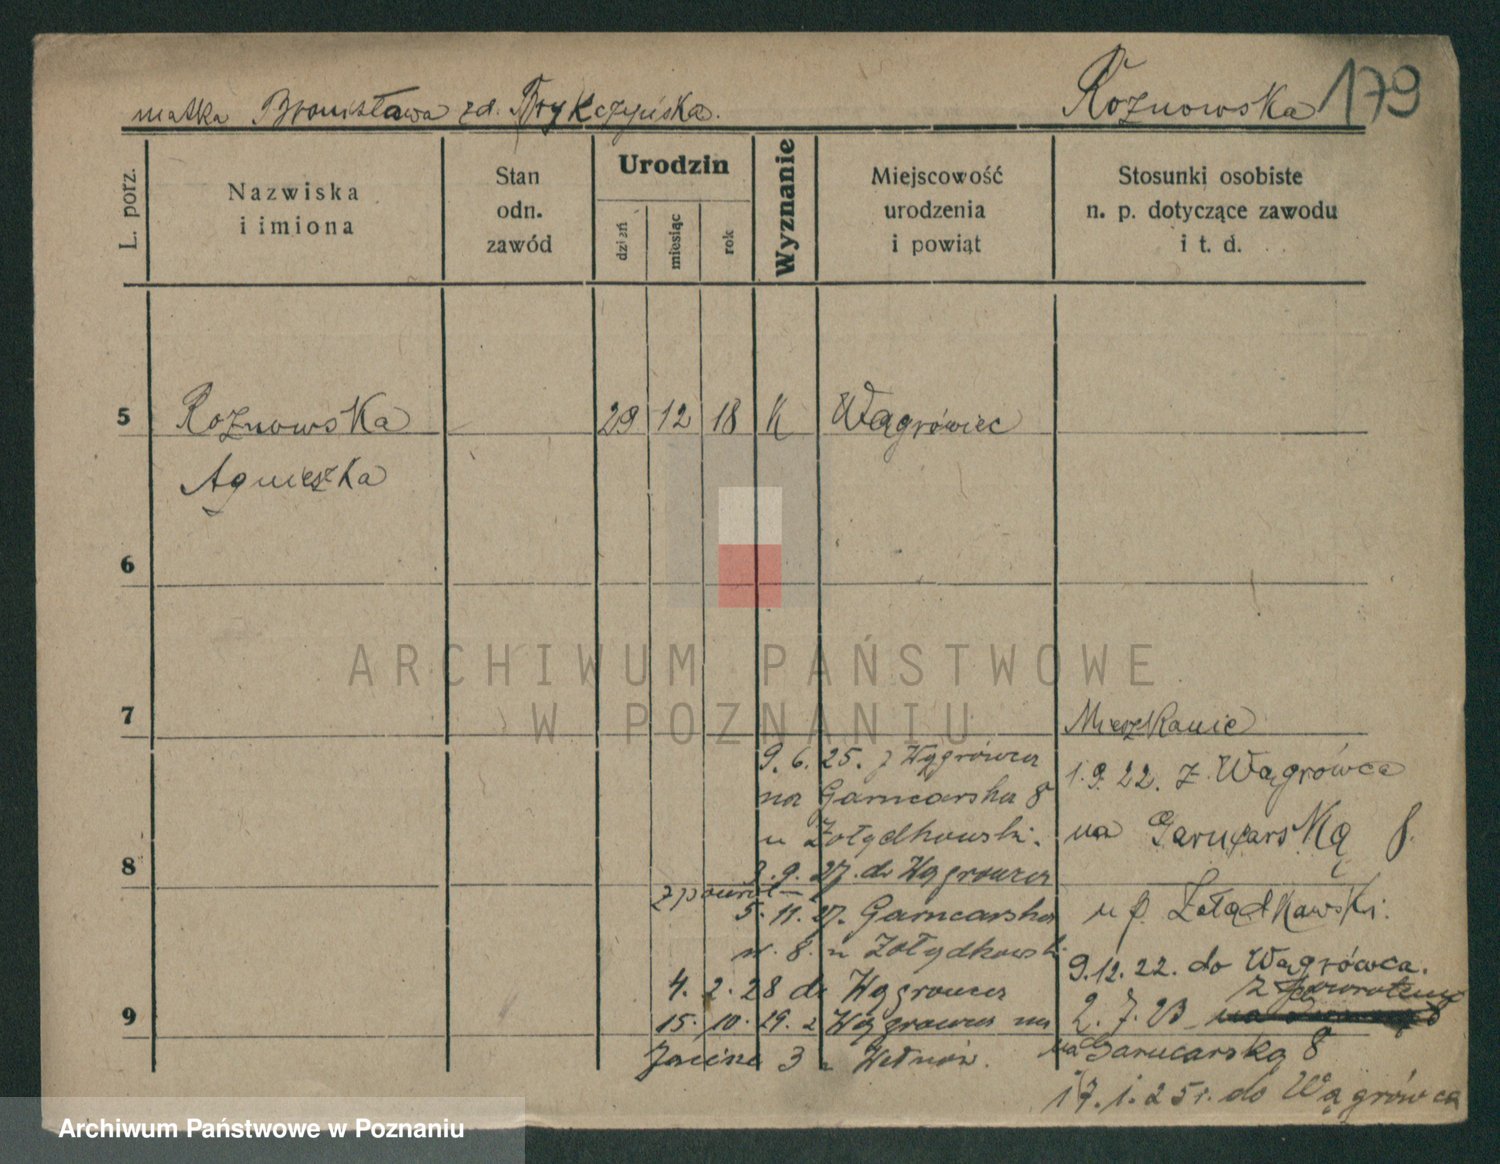 matka Bronisława zd.
Roznowska 179
L. porz.
Nazwiska
i imiona
Stan
odn.
zawód
Urodzin
dzień
miesiąc
rok
Wyznanie
Miejscowość
urodzenia
i powiąt
Stosunki osobiste
n. p. dotyczące zawodu
i t. d.
5 Roznowska 29 12 18 K Wągrówiec
Agnieszka
6
7
8
9
Mieszkanie
1.9.22. z Wągrówca
na Garncarską 8.
u p. Żołądkowski.
9.12.22. do Wągrówca.
z powrotem
2.7.23
na Garncarską 8
17.1.25r. do Wągrówca
9.6.25. z Wągrówca
na Garncarska 8
u Żołądkowski.
3.9.27. do Wągrowca
z powrot
5.11.27. Garncarska
nr. 8. u Żołądkowski
4.2.28 do Wągrowca
15.10.29. z Wągrowca na
3 u
ARCHIWUM PAŃSTWOWE
W POZNANIU
Archiwum Państwowe w Poznaniu